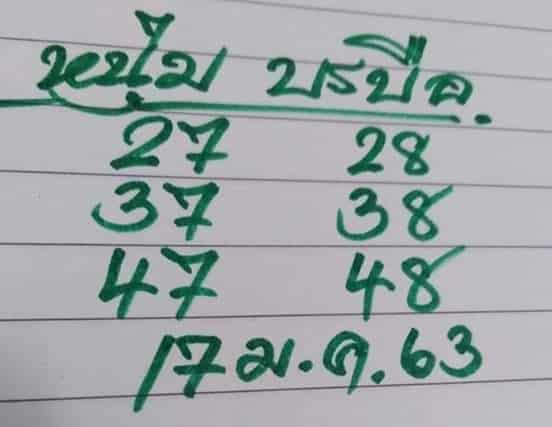 หน่ไม บรบือ.
27 28
37 38
47 48
17 ม.ค. 63